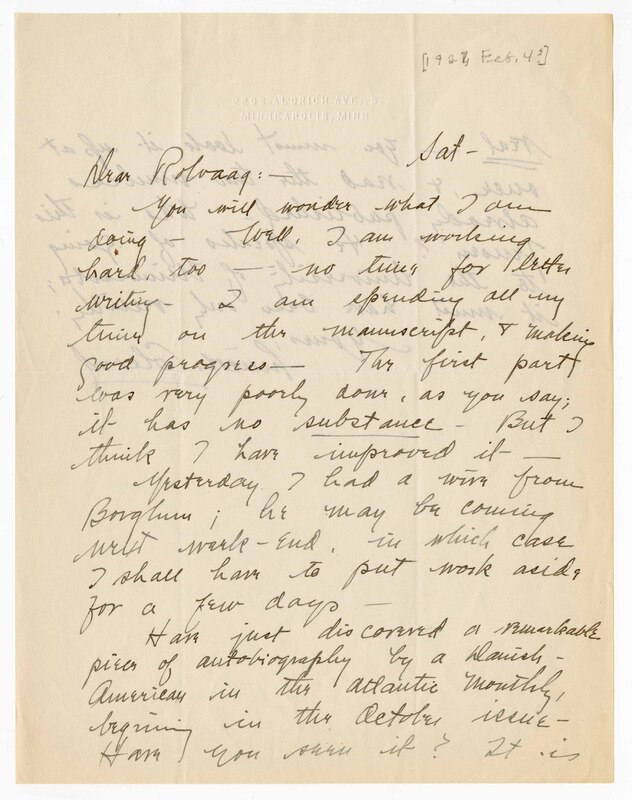 [1927, Feb. 4?]
2208 ALDRICH AVE., S.
MINNEAPOLIS, MINN.
Sat —
Dear Rolvaag: —
You will wonder what I am
doing — Well, I am working
hard, too — no time for letter
writing — I am spending all my
time on the manuscript, & making
good progress — The first part
was very poorly done, as you say;
it has no substance — But I
think I have improved it —
Yesterday I had a wire from
Borglum; he may be coming
next week-end, in which case
I shall have to put work aside
for a few days —
Have just discovered a remarkable
piece of autobiography by a Danish-
American in the Atlantic Monthly,
beginning in the October issue —
Have you seen it? It is